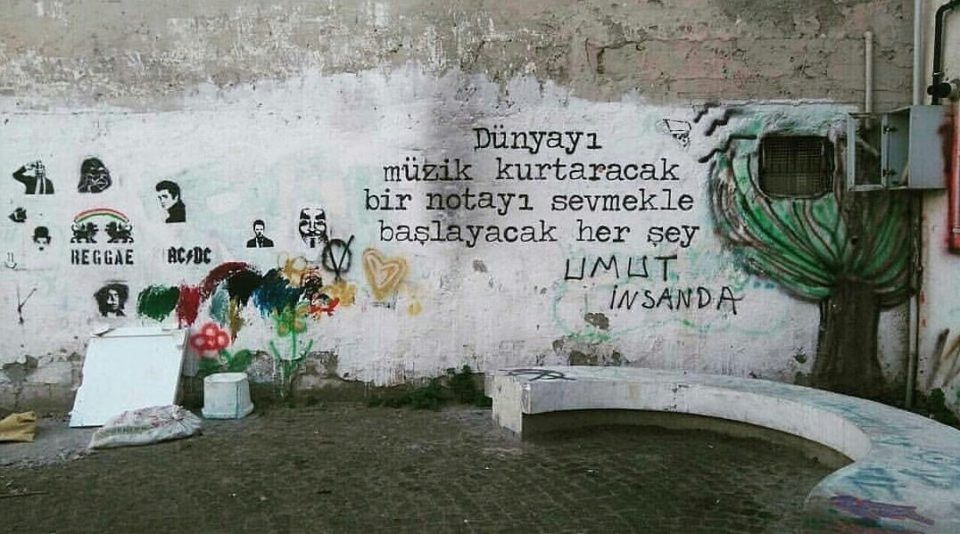 Dünyayı
müzik kurtaracak
bir notayı sevmekle
başlayacak her şey
UMUT
İNSANDA
REGGAE
AC⚡DC
V